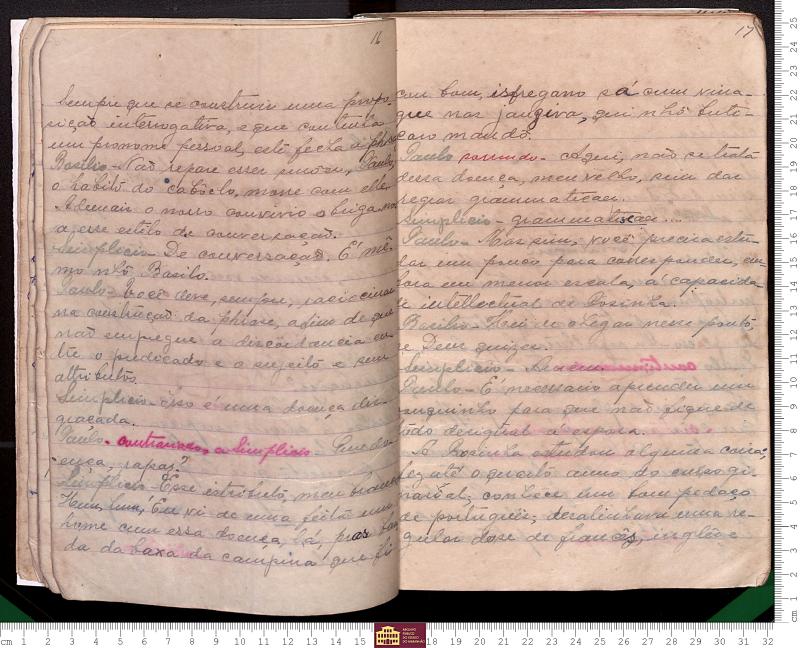 16
Sempre que se construir uma propo-
sição interrogativa, e que contenha
um pronome pessoal, este fecha a phrase
Basilio - Não repare esses Paulo,
o habito do cabôclo, morre com elle.
Ademais o nosso convivio obriga-nos
a, esse estilo de conversação.
Simplicio - De conversação. É mê-
mo nhô Basilo.
Paulo - Você deve, sempre, raciocinar
na construção da phrase, afim de que
não empregue a discordancia en-
tre o predicado e o sujeito e seus
attributos.
Simplicio - isso é uma doença des-
graçada.
Paulo - contrariado a Simplicio - Que do-
ença, rapaz?
Simplicio - Esse istributo, meu branco
Hum, hum! Eu vi de uma feita um
home cum essa doença, lá, pras ban-
da da baxa da campina que fi
17
cou bom, isfregano sá cum vina-
gue nas jangiva, qui nhô buti-
caro mandô.
Paulo sorrindo - Aqui, não se trata
dessa doença, meu velho, sim das
regras grammaticaes.
Simplicio - grammatiscaes....
Paulo - Mas sim, você precisa estu-
dar um pouco para corresponder, em-
bora em menor escala, á capacida-
de intellectual de Rosinha.
Basilio - Hein de chegar nesse ponto,
se Deus quizer.
Simplicio -
Paulo - É necessario aprender um
pouquinho para que não fique de
todo desigual a esposa.
A Rosinha estudou alguma coisa;
fez até o quarto anno do curso gi-
nasial; conhece um bom pedaço
de português; desalinhava uma re-
gular dose de francês, inglês e
cm 1 2 3 4 5 6 7 8 9 10 11 12 13 14 15
ARQUIVO PÚBLICO DO ESTADO DO MARANHÃO
18 19 20 21 22 23 24 25 26 27 28 29 30 31 32